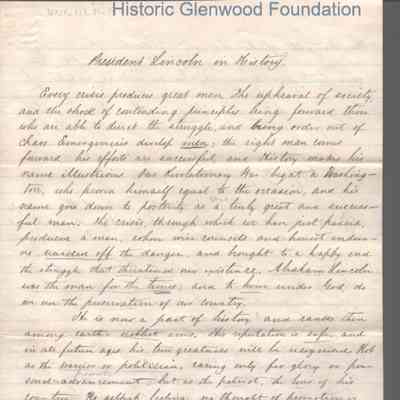 Historic Glenwood Foundation
President Lincoln in History.
Every crisis produces great men. The upheaval of society,
and the shock of contending principles bring forward those
who are able to direct the struggle, and bring order out of
chaos. Emergencies develop men; the right man comes
forward, his efforts are successful, and History makes his
name illustrious. Our Revolutionary War begat a Washing-
ton, who proved himself equal to the occasion, and his
name goes down to posterity as a truly great and success-
ful man. The crisis, through which we have just passed,
produced a man, whose wise counsels and honest endeav-
ors warded off the danger, and brought to a happy end
the struggle that threatened our existence. Abraham Lincoln
was the man for the times, and to him under God, do
we owe the preservation of our country.
He is now a part of history and ranks then
among earth's noblest sons. His reputation is safe, and
in all future ages his true greatness will be recognized. Not
as the warrior or politician, caring only for glory or per-
sonal advancement, but as the patriot, the lover of his
country. No selfish feeling, no thought of promotion or